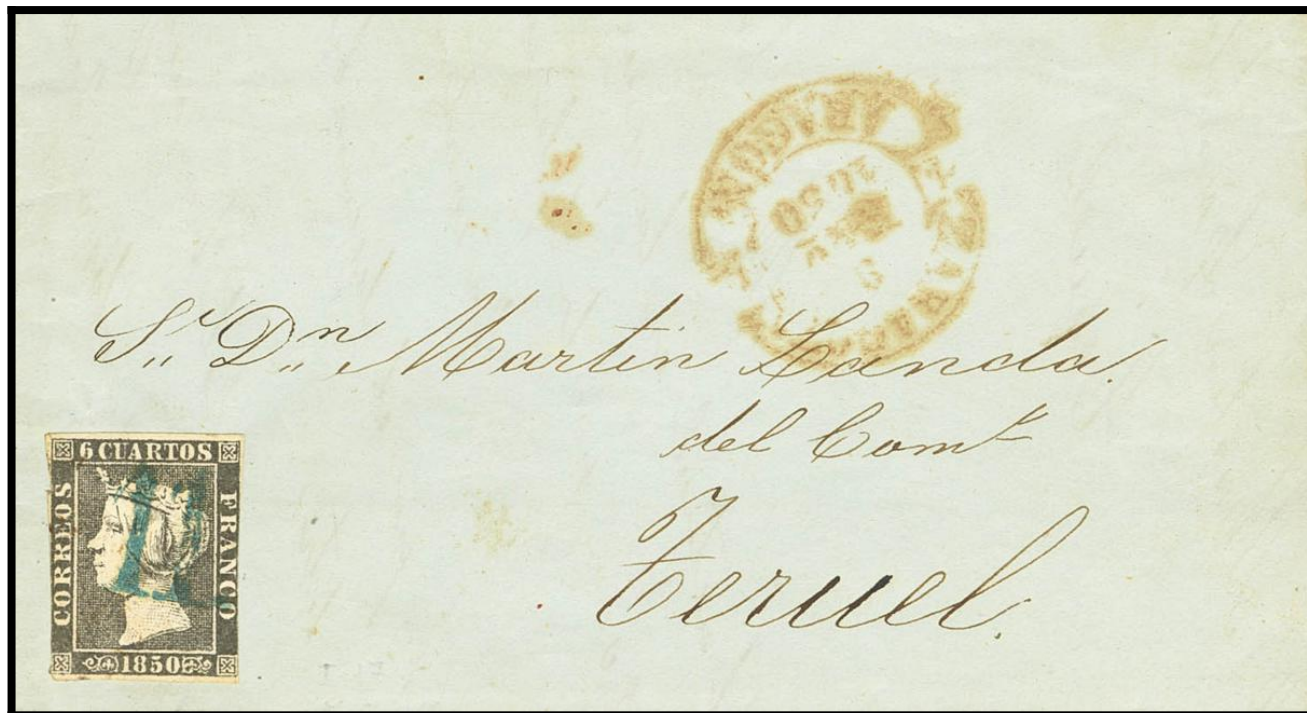 ARAGON
1850
Sr. Dn. Martin Landa
del Comº
Teruel.
6 CUARTOS
CORREOS
FRANCO
1850